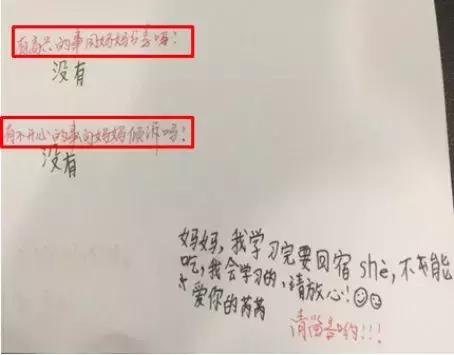 有高兴的事同妈妈分享嘛！
没有
有不开心的事向妈妈倾诉吗！
没有
妈妈，我学习完要回宿shè，不能
吃，我会学习的，请放心！
爱你的芮芮
请哟！！！